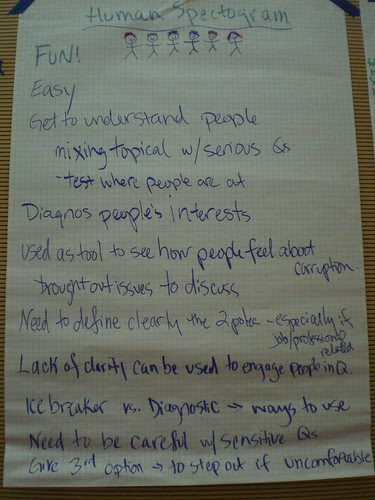 Human Spectogram
FUN!
Easy
Get to understand people
mixing topical w/serious Qs
-test where people are at
Diagnos people's interests
used as tool to see how people feel about
corruption
brought out issues to discuss
Need to define clearly the 2 poles - especially if
job/professional
related
Lack of clarity can be used to engage people in Q.
Ice breaker vs. Diagnostic → ways to use
Need to be careful w/sensitive Qs
Give 3rd option → to step out if uncomfortable